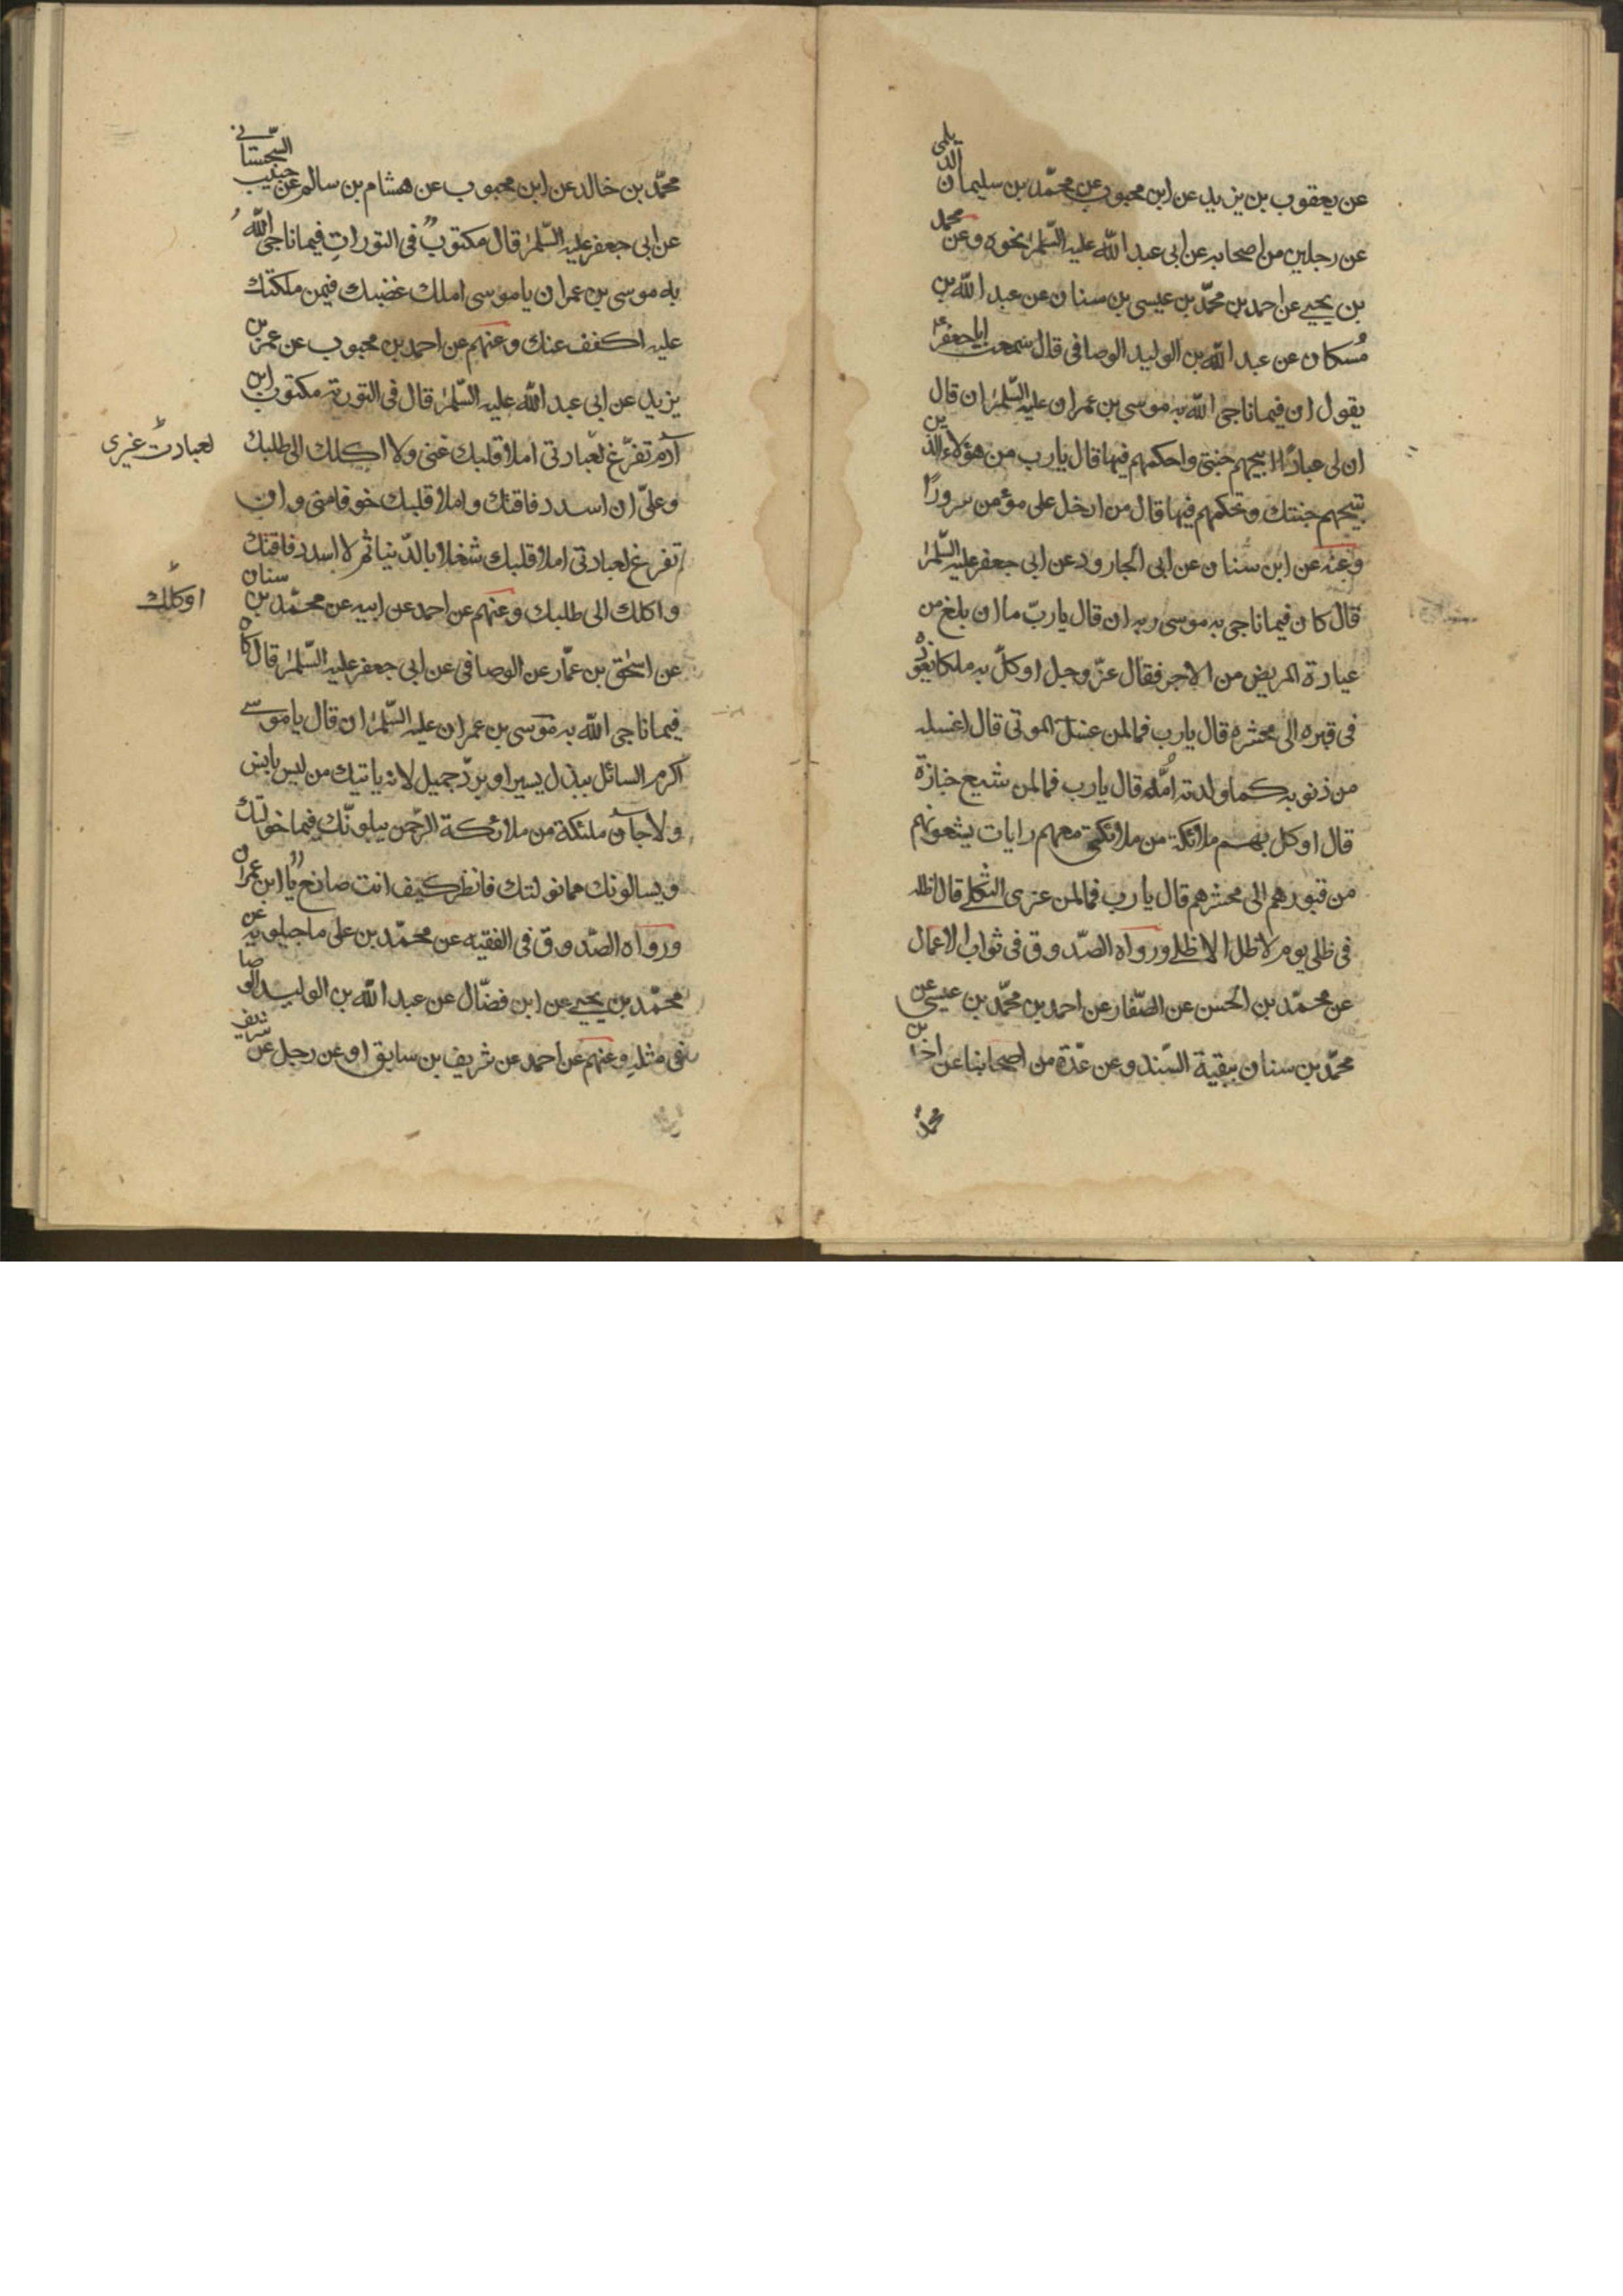 عن يعقوب بن يزيد عن ابن محبوب عن محمّد بن سليمان الديلمى
عن رجلين من اصحابه عن ابى عبد الله عليه السّلم نحوه وعن محمد
بن يحيى عن احمد بن محمّد بن عيسى بن سنان عن عبد الله بن
مُسكان عن عبد الله بن الوليد الوصافى قال سمعت ابا جعفر ع
يقول ان فيما ناجى الله به موسى بن عمران عليه السّلم ان قال
ان لى عبادًا ابيحهم جنتى واحكمهم فيها قال يا رب من هؤلاء الذين
تبيحهم جنتك وتحكمهم فيها قال من ادخل على مؤمن سرورًا
وعنه عن ابن سنان عن ابى الجارود عن ابى جعفر عليه السّلم
قال كان فيما ناجى به موسى ربه ان قال يا ربّ ما ان بلغ من
عيادة المريض من الاجر فقال عزّ وجل اوكلّ به ملكا يعوده
فى قبره الى محشره قال يا رب فما لمن غسل الموتى قال اغسله
من ذنوبه كما ولدته اُمّه قال يا رب فما لمن شيع جنازة
قال اوكل بهم ملائكة من ملائكتى معهم رايات يشيعونهم
من قبورهم الى محشرهم قال يا رب فما لمن عزى الثكلى قال اظله
فى ظلى يوم لا ظل الا ظلى ورواه الصّدوق فى ثواب الاعمال
عن محمّد بن الحسن عن الصّفار عن احمد بن محمّد بن عيسى عن
محمّد بن سنان ببقية السّند وعن عدّة من اصحابنا عن احمد بن
محمد
محمّد بن خالد عن ابن محبوب عن هشام بن سالم عن حبيب السّجستانى
عن ابى جعفر عليه السّلم قال مكتوبٌ فى التوراتِ فيما ناجى اللهُ
به موسى بن عمران يا موسى املك غضبك فيمن ملكتك
عليه اكفف عنك وعنهم عن احمد بن محبوب عن عمر بن
يزيد عن ابى عبد الله عليه السّلم قال فى التورية مكتوب ابن
آدم تفرّغ لعبادتى املأ قلبك غنى ولا اكلك الى طلبك
وعلىّ ان اسدد فاقتك واملأ قلبك خوفا منى وان
تفرغ لعبادتى املأ قلبك شغلاً بالدّنيا ثم لا اسدد فاقتك
واكلك الى طلبك وعنهم عن احمد عن ابيه عن محمّد بن سنان
عن اسحٰق بن عمّار عن الوصافى عن ابى جعفر عليه السّلم قال كان
فيما ناجى الله به موسى بن عمران عليه السّلم ان قال يا موسى
اكرم السائل ببذل يسير او بردّ جميل لانه ياتيك من ليس بانس
ولا جانّ ملئكة من ملائكة الرّحمن يبلونّك فيما خولتك
ويسالونك مما نولتك فانظر كيف انت صانعٌ يا ابن عمران
ورواه الصّدوق فى الفقيه عن محمّد بن على ماجيلويه عن
محمّد بن يحيى عن ابن فضّال عن عبد الله بن الوليد الوصا
فى مثله وعنهم عن احمد عن شريف بن سابق او عن رجل عن شريف
لعبادت غيرى
او كلك